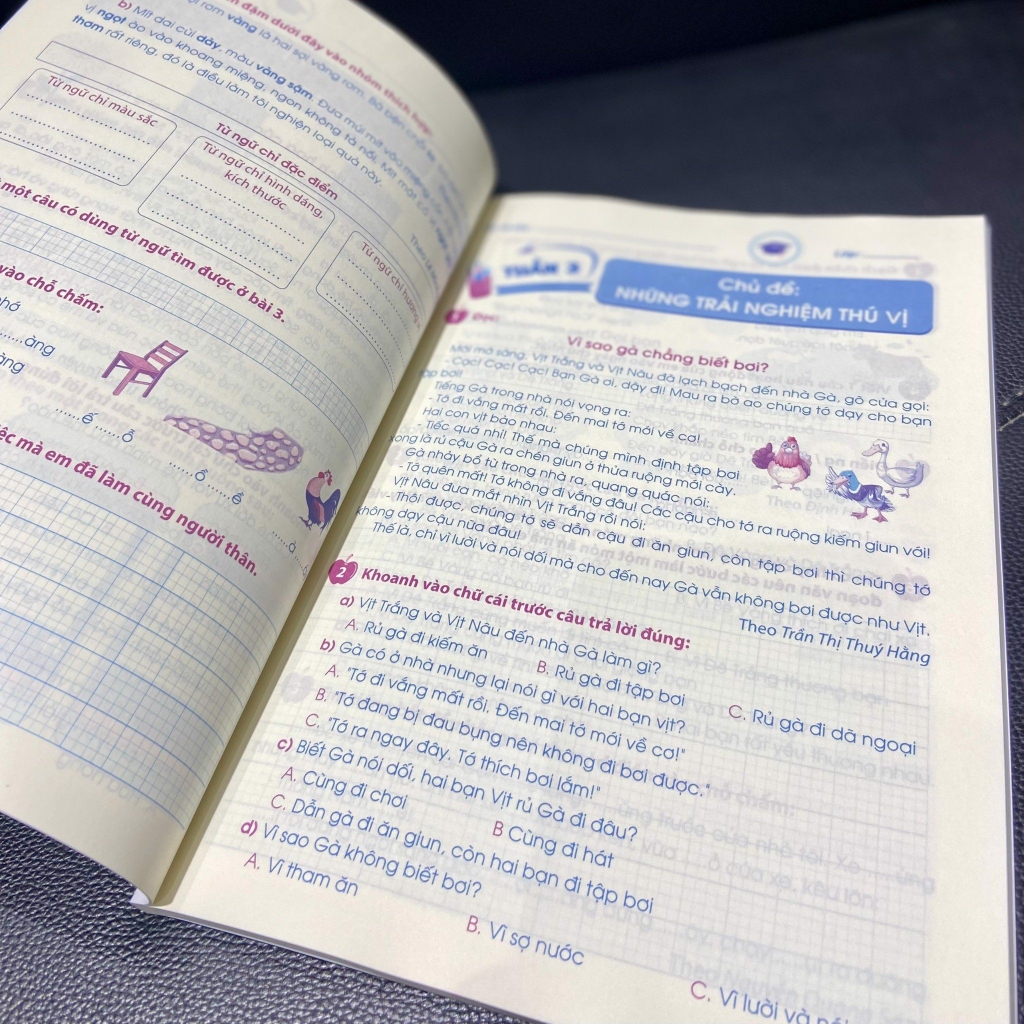 đậm dưới đây vào nhóm thích hợp:
vàng là hai sợi vàng rơm.
b) Mít dai cùi dày, màu vàng sậm. Đưa múi mít vào miệng
vị ngọt ào vào khoang miệng, ngon không tả nổi. Mít mật
thơm rất riêng, đó là điều làm tôi nghiện loại quả này.
Từ ngữ chỉ đặc điểm
Từ ngữ chỉ màu sắc
Từ ngữ chỉ hình dáng,
kích thước
Từ ngữ chỉ hương
một câu có dùng từ ngữ tìm được ở bài 3.
vào chỗ chấm:
......àng
......ế ......ỗ
......ồ ......ề
việc mà em đã làm cùng người thân.
TUẦN 3
Chủ đề:
NHỮNG TRẢI NGHIỆM THÚ VỊ
1 Đọc:
Vì sao gà chẳng biết bơi?
Mới mờ sáng, Vịt Trắng và Vịt Nâu đã lạch bạch đến nhà Gà, gõ cửa gọi:
- Cạc! Cạc! Cạc! Bạn Gà ơi, dậy đi! Mau ra bờ ao chúng tớ dạy cho bạn
tập bơi!
Tiếng Gà trong nhà nói vọng ra:
- Tớ đi vắng mất rồi. Đến mai tớ mới về cơ!
Hai con vịt bảo nhau:
- Tiếc quá nhỉ! Thế mà chúng mình định tập bơi
xong là rủ cậu Gà ra chén giun ở thửa ruộng mới cày.
Gà nhảy bổ từ trong nhà ra, quang quác nói:
- Tớ quên mất! Tớ không đi vắng đâu! Các cậu cho tớ ra ruộng kiếm giun với!
Vịt Nâu đưa mắt nhìn Vịt Trắng rồi nói:
- Thôi được, chúng tớ sẽ dẫn cậu đi ăn giun, còn tập bơi thì chúng tớ
không dạy cậu nữa đâu!
Thế là, chỉ vì lười và nói dối mà cho đến nay Gà vẫn không bơi được như Vịt.
Theo Trần Thị Thuý Hằng
2 Khoanh vào chữ cái trước câu trả lời đúng:
a) Vịt Trắng và Vịt Nâu đến nhà Gà làm gì?
A. Rủ gà đi kiếm ăn B. Rủ gà đi tập bơi C. Rủ gà đi dã ngoại
b) Gà có ở nhà nhưng lại nói gì với hai bạn vịt?
A. "Tớ đi vắng mất rồi. Đến mai tớ mới về cơ!"
B. "Tớ đang bị đau bụng nên không đi bơi được."
C. "Tớ ra ngay đây. Tớ thích bơi lắm!"
c) Biết Gà nói dối, hai bạn Vịt rủ Gà đi đâu?
A. Cùng đi chơi B Cùng đi hát
C. Dẫn gà đi ăn giun, còn hai bạn đi tập bơi
d) Vì sao Gà không biết bơi?
A. Vì tham ăn B. Vì sợ nước C. Vì lười và nói